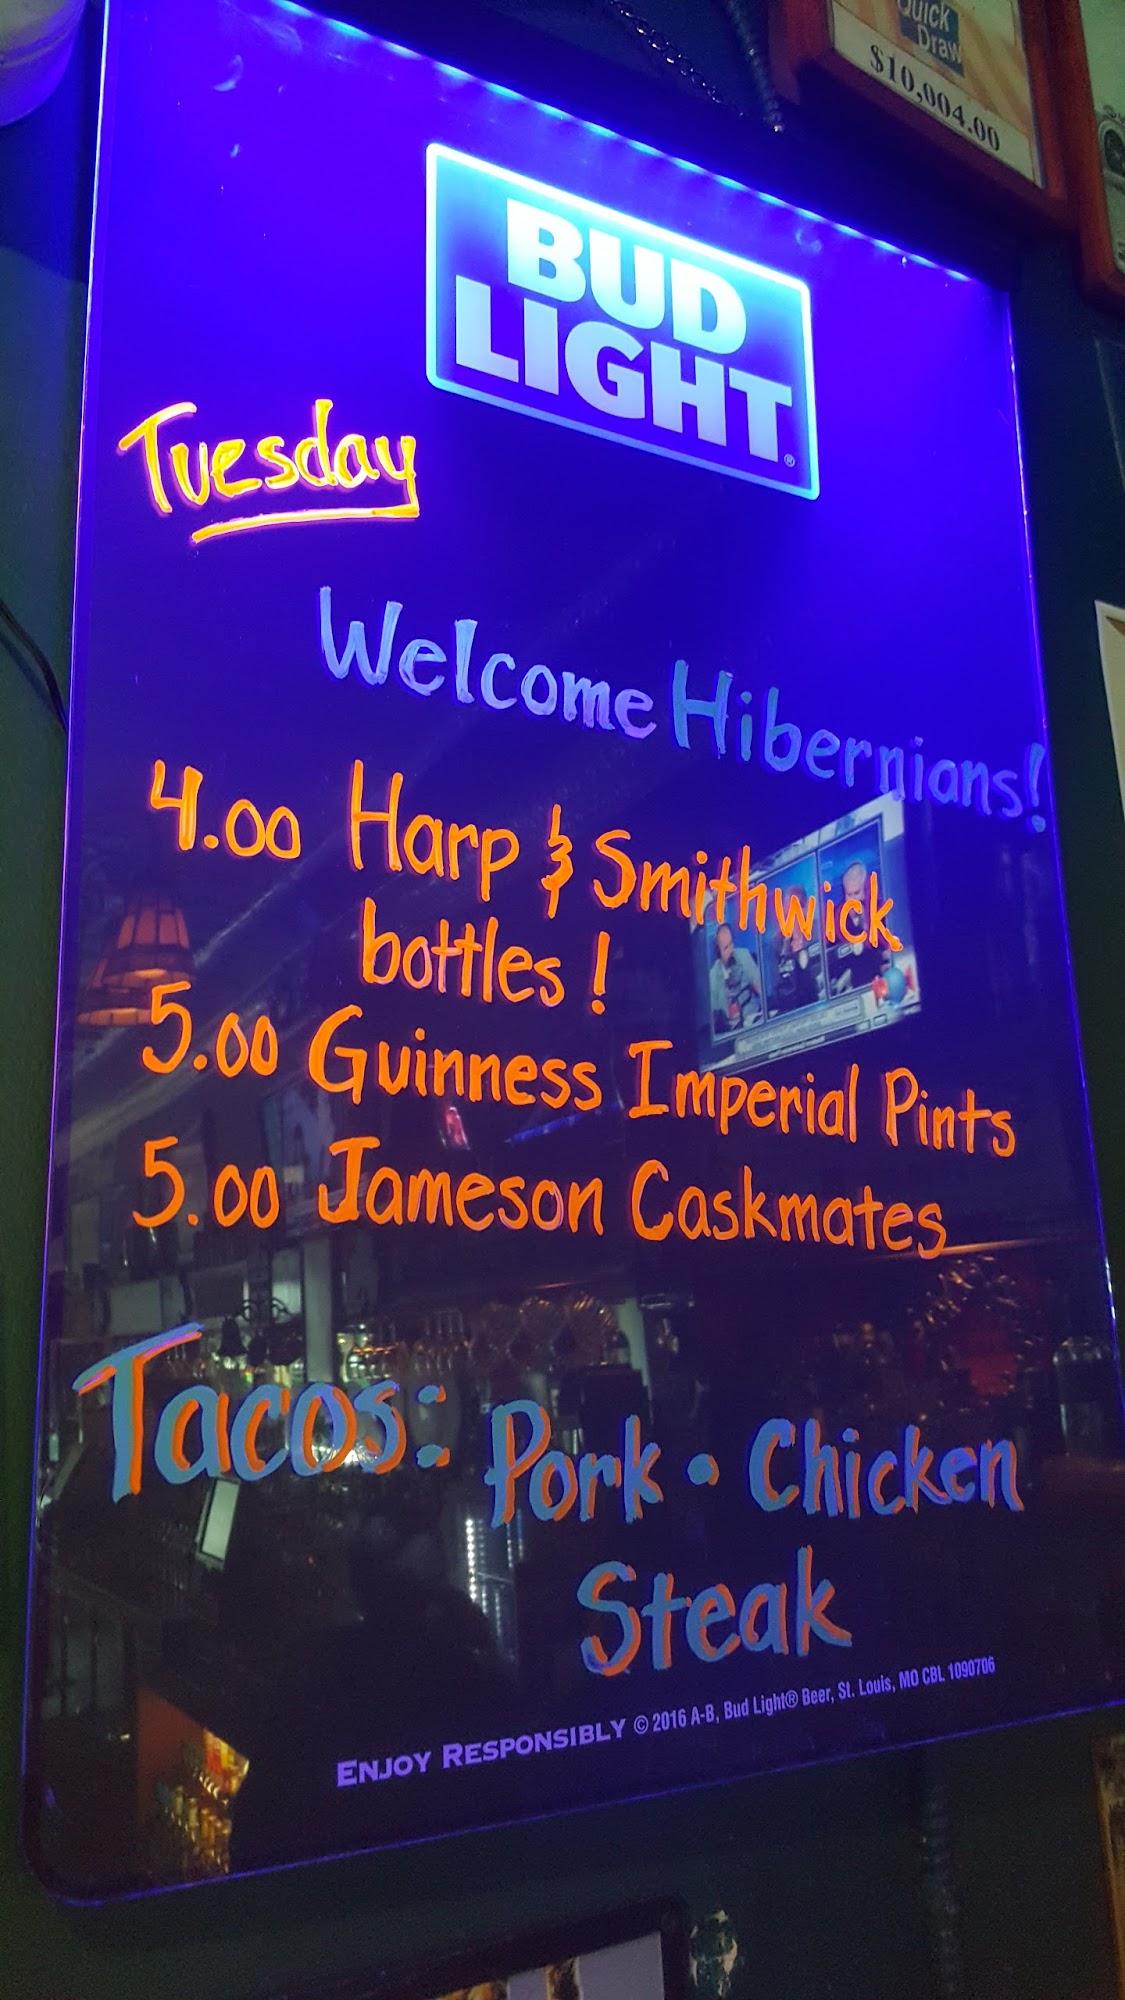 Quick
Draw
$10,004.00
BUD
LIGHT®
Tuesday
Welcome Hibernians!
4.00 Harp & Smithwick
bottles!
5.00 Guinness Imperial Pints
5.00 Jameson Caskmates
Tacos: Pork • Chicken
Steak
ENJOY RESPONSIBLY © 2016 A-B, Bud Light® Beer, St. Louis, MO CBL 1090706